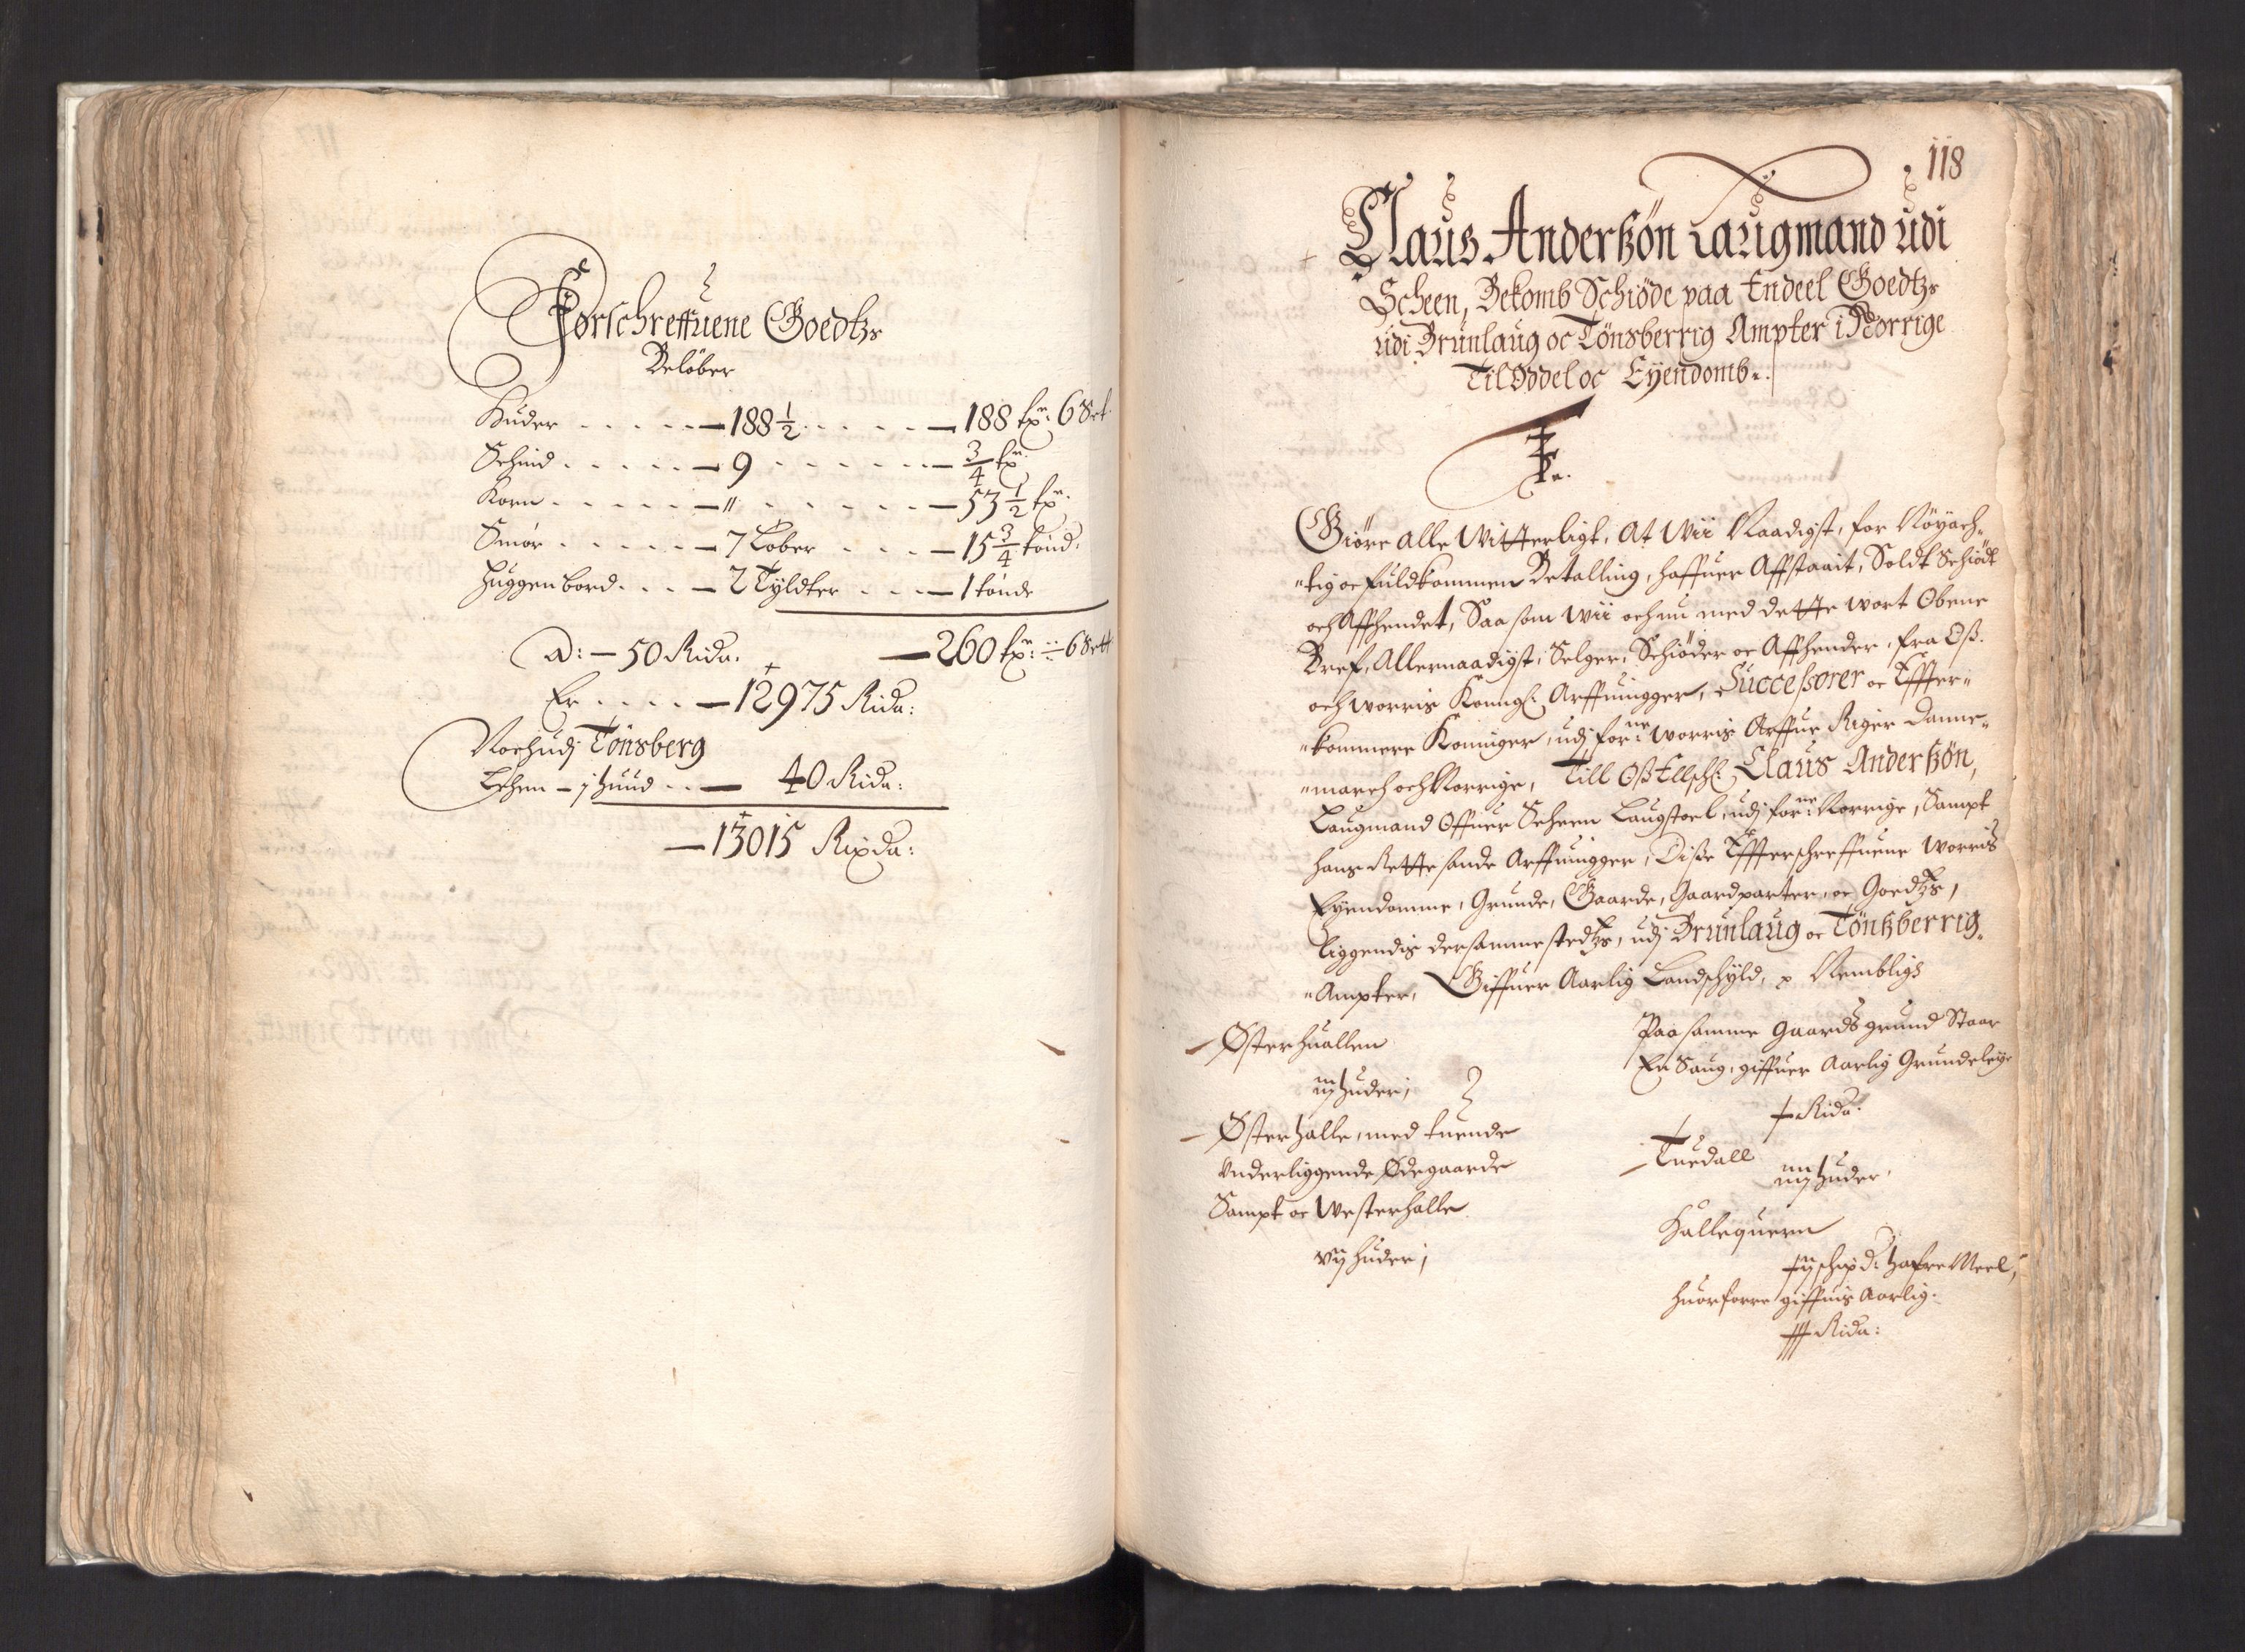 Forschreffuene Goedtzs
Beløber
Huder . . . . . — 188 1/2 . . . . . — 188 tr: 6 Set.
Schind . . . . . — 9 . . . . . . — 3/4 tr
Korn . . . . . — " . . . . . . — 53 1/2 tr.
Smør . . . . . — 7 Løber . . . — 15 3/4 tønd.
Huggenbord . . . — 2 Tyldter . . . — 1 tønde
a: — 50 Rida. — 260 tr: ÷ 6 Sett
Er . . . . — 12975 Rida:
Noch udj Tönsberg
Lehen — j huud . . — 40 Rida:
— 13015 Rixda:
118
Claus Anderßön Laugmand udi
Scheen, Bekomb Schiöde paa Endeel Goedtzs
udi Brunlaug oc Tönsberrig Ampter i Norrige
Til Oddel oc Eyendomb.
F 3.
Giöre alle Witterligt, At Wii Naadigst, for Nöyach-
"tig oc fuldkommen Betalling, haffuer Affstaait, Soldt Schiödt
och Affhendet, Saa som Wii och nu med dette wort Obene
Bref, Allernaadigst, Selger, Schiöder oc Affhender, fra Oß.
och worris Kongl: Arffuingger, Successorer oc Effter-
"kommere Konniger, udj forne: worris Arffue Riger Danne-
"march och Norrige, Till Oß Ellschl: Claus Anderßön,
Laugmand Offuer Scheen Laugstoel, udj forne: Norrige, Sampt
hans Rette sande Arffuingger, Diße Effterschreffuene worris
Eyendomme, Grunde, Gaarde, Gaardparter, oc Goedtzs,
liggendis dersammestedtzs, udj Brunlaug oc Tönßberrig.
"Ampter, Giffuer Aarlig Landschyld, Nembligs
Østerhuallen
iij huder;
Østerhalle, med tuende
Underliggende Ødegaarde
Sampt oc Westerhalle
vij huder;
Paa samme Gaards grund Staar
En Saug, giffuer Aarlig Grundeleye
j Rida.
Tuedall
iiij huder,
Hallequern
iij schipd: Hafre Meel,
huorforre giffuis Aarlig.
iij Rida: